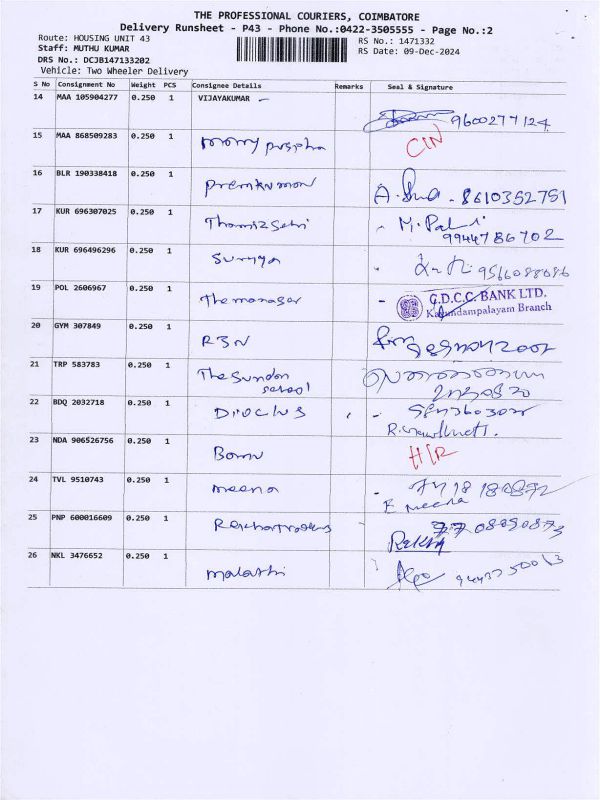 THE PROFESSIONAL COURIERS, COIMBATORE
Delivery Runsheet - P43 - Phone No.:0422-3505555 - Page No.:2
Route: HOUSING UNIT 43
RS No.: 1471332
Staff: MUTHU KUMAR
RS Date: 09-Dec-2024
DRS No.: DCJB147133202
Vehicle: Two Wheeler Delivery
S No Consignment No Weight PCS Consignee Details Remarks Seal & Signature
14 MAA 105904277 0.250 1 VIJAYAKUMAR
9600277124
15 MAA 868509283 0.250 1
CIN
16 BLR 190338418 0.250 1 Premkumar
8610352751
17 KUR 696307025 0.250 1
9944786702
18 KUR 696496296 0.250 1 Suryya
9566088686
19 POL 2606967 0.250 1 The manager
C.D.C.C. BANK LTD.
Kavundampalayam Branch
20 GYM 307849 0.250 1 RSN
21 TRP 583783 0.250 1 The Sundon
school
22 BDQ 2032718 0.250 1
23 NDA 906526756 0.250 1
H/R
24 TVL 9510743 0.250 1 meena
E meena
25 PNP 600016609 0.250 1
26 NKL 3476652 0.250 1 malathi